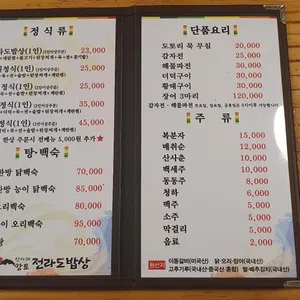 정 식 류
라도밥상(1인) 23,000
정식(1인) 25,000
정식(1인) 35,000
정식(1인) 45,000
한상 주문시 전메뉴 5,000원 추가
탕·백숙
한방 닭백숙 70,000
한방 능이 닭백숙 85,000
오리백숙 80,000
이 오리백숙 95,000
탕 90,000
전라도밥상
단품요리
도토리 묵 무침 20,000
감자전 15,000
해물파전 30,000
더덕구이 30,000
황태구이 30,000
장어 구이 120,000
주 류
복분자 15,000
매취순 12,000
산사춘 10,000
백세주 10,000
동동주 8,000
청하 6,000
맥주 5,000
소주 5,000
막걸리 5,000
음료 2,000
원산지
이동갈비(미국산) 닭·오리·장어(국내산)
고추가루(국내산·중국산 혼합) 쌀·배추김치(국내산)